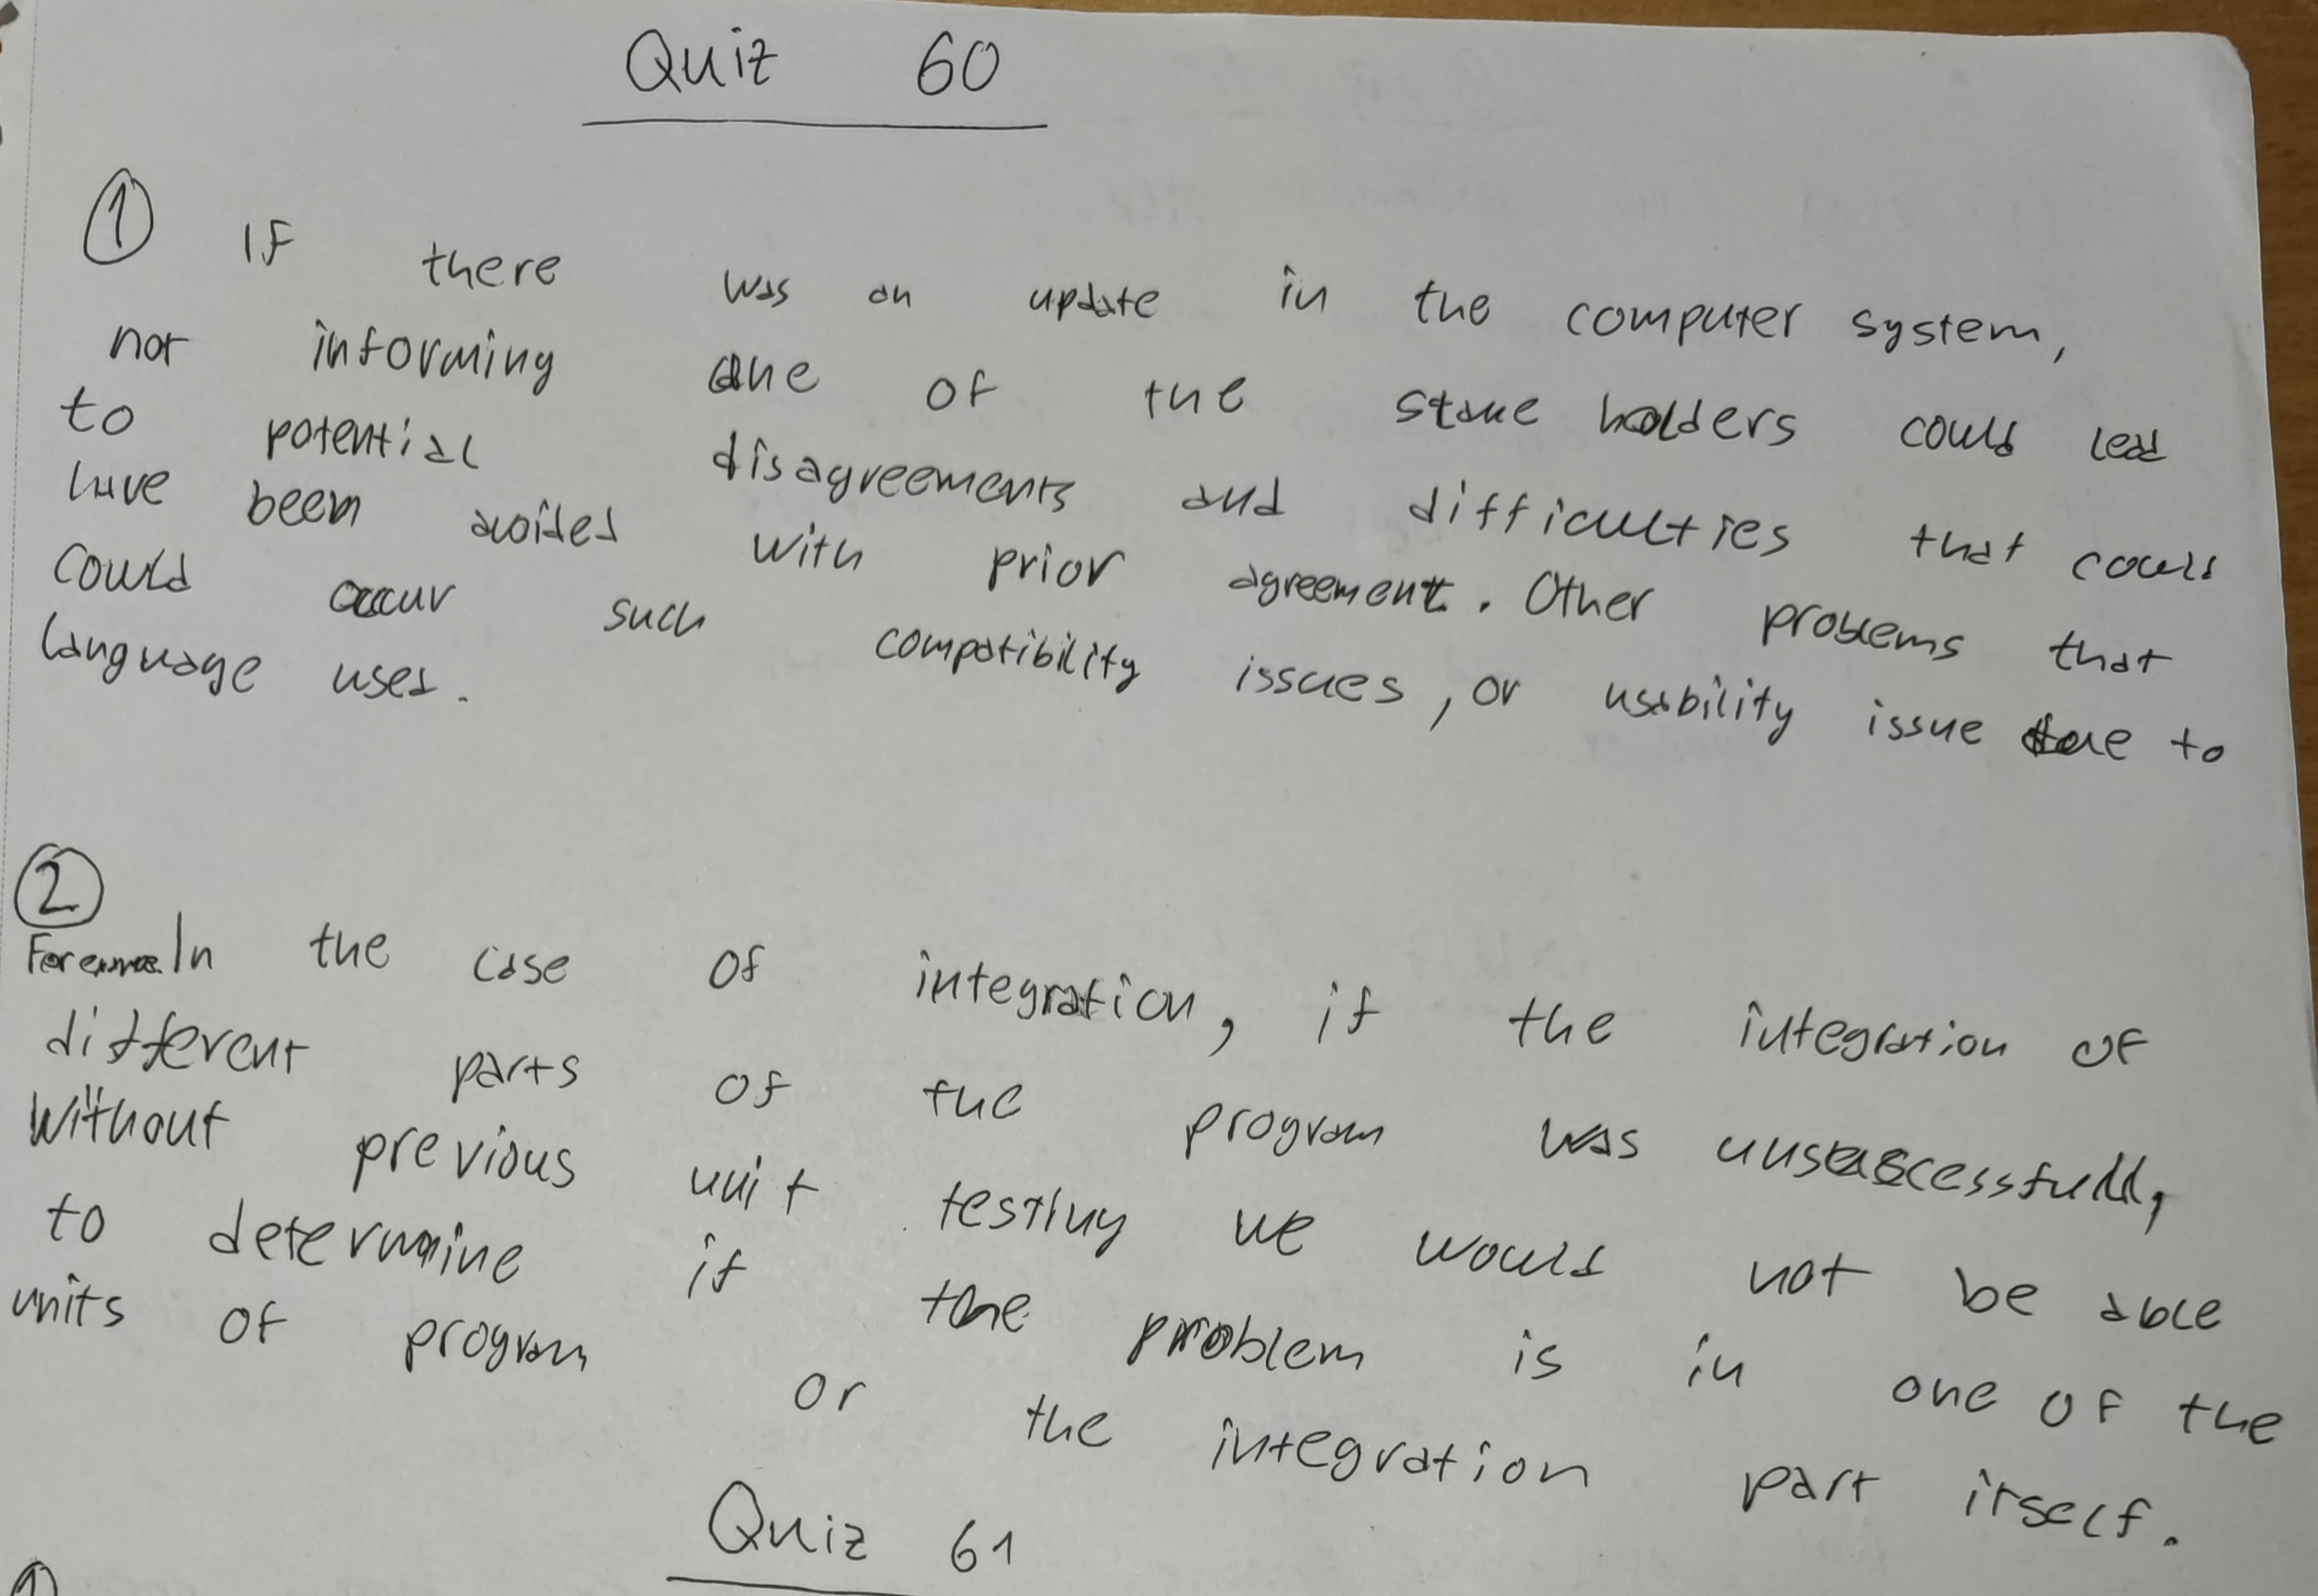 Quiz 60
① If there was an update in the computer system,
not informing one of the stake holders could lead
to potential disagreements and difficulties that could
have been avoided with prior agreement. Other problems that
could occur such compatibility issues, or usability issue due to
language used.
②
In the case of integration, if the integration of
different parts of the program was unsuccessfull,
without previous unit testing we would not be able
to determine if the problem is in one of the
units of program or the integration part itself.
Quiz 61
①